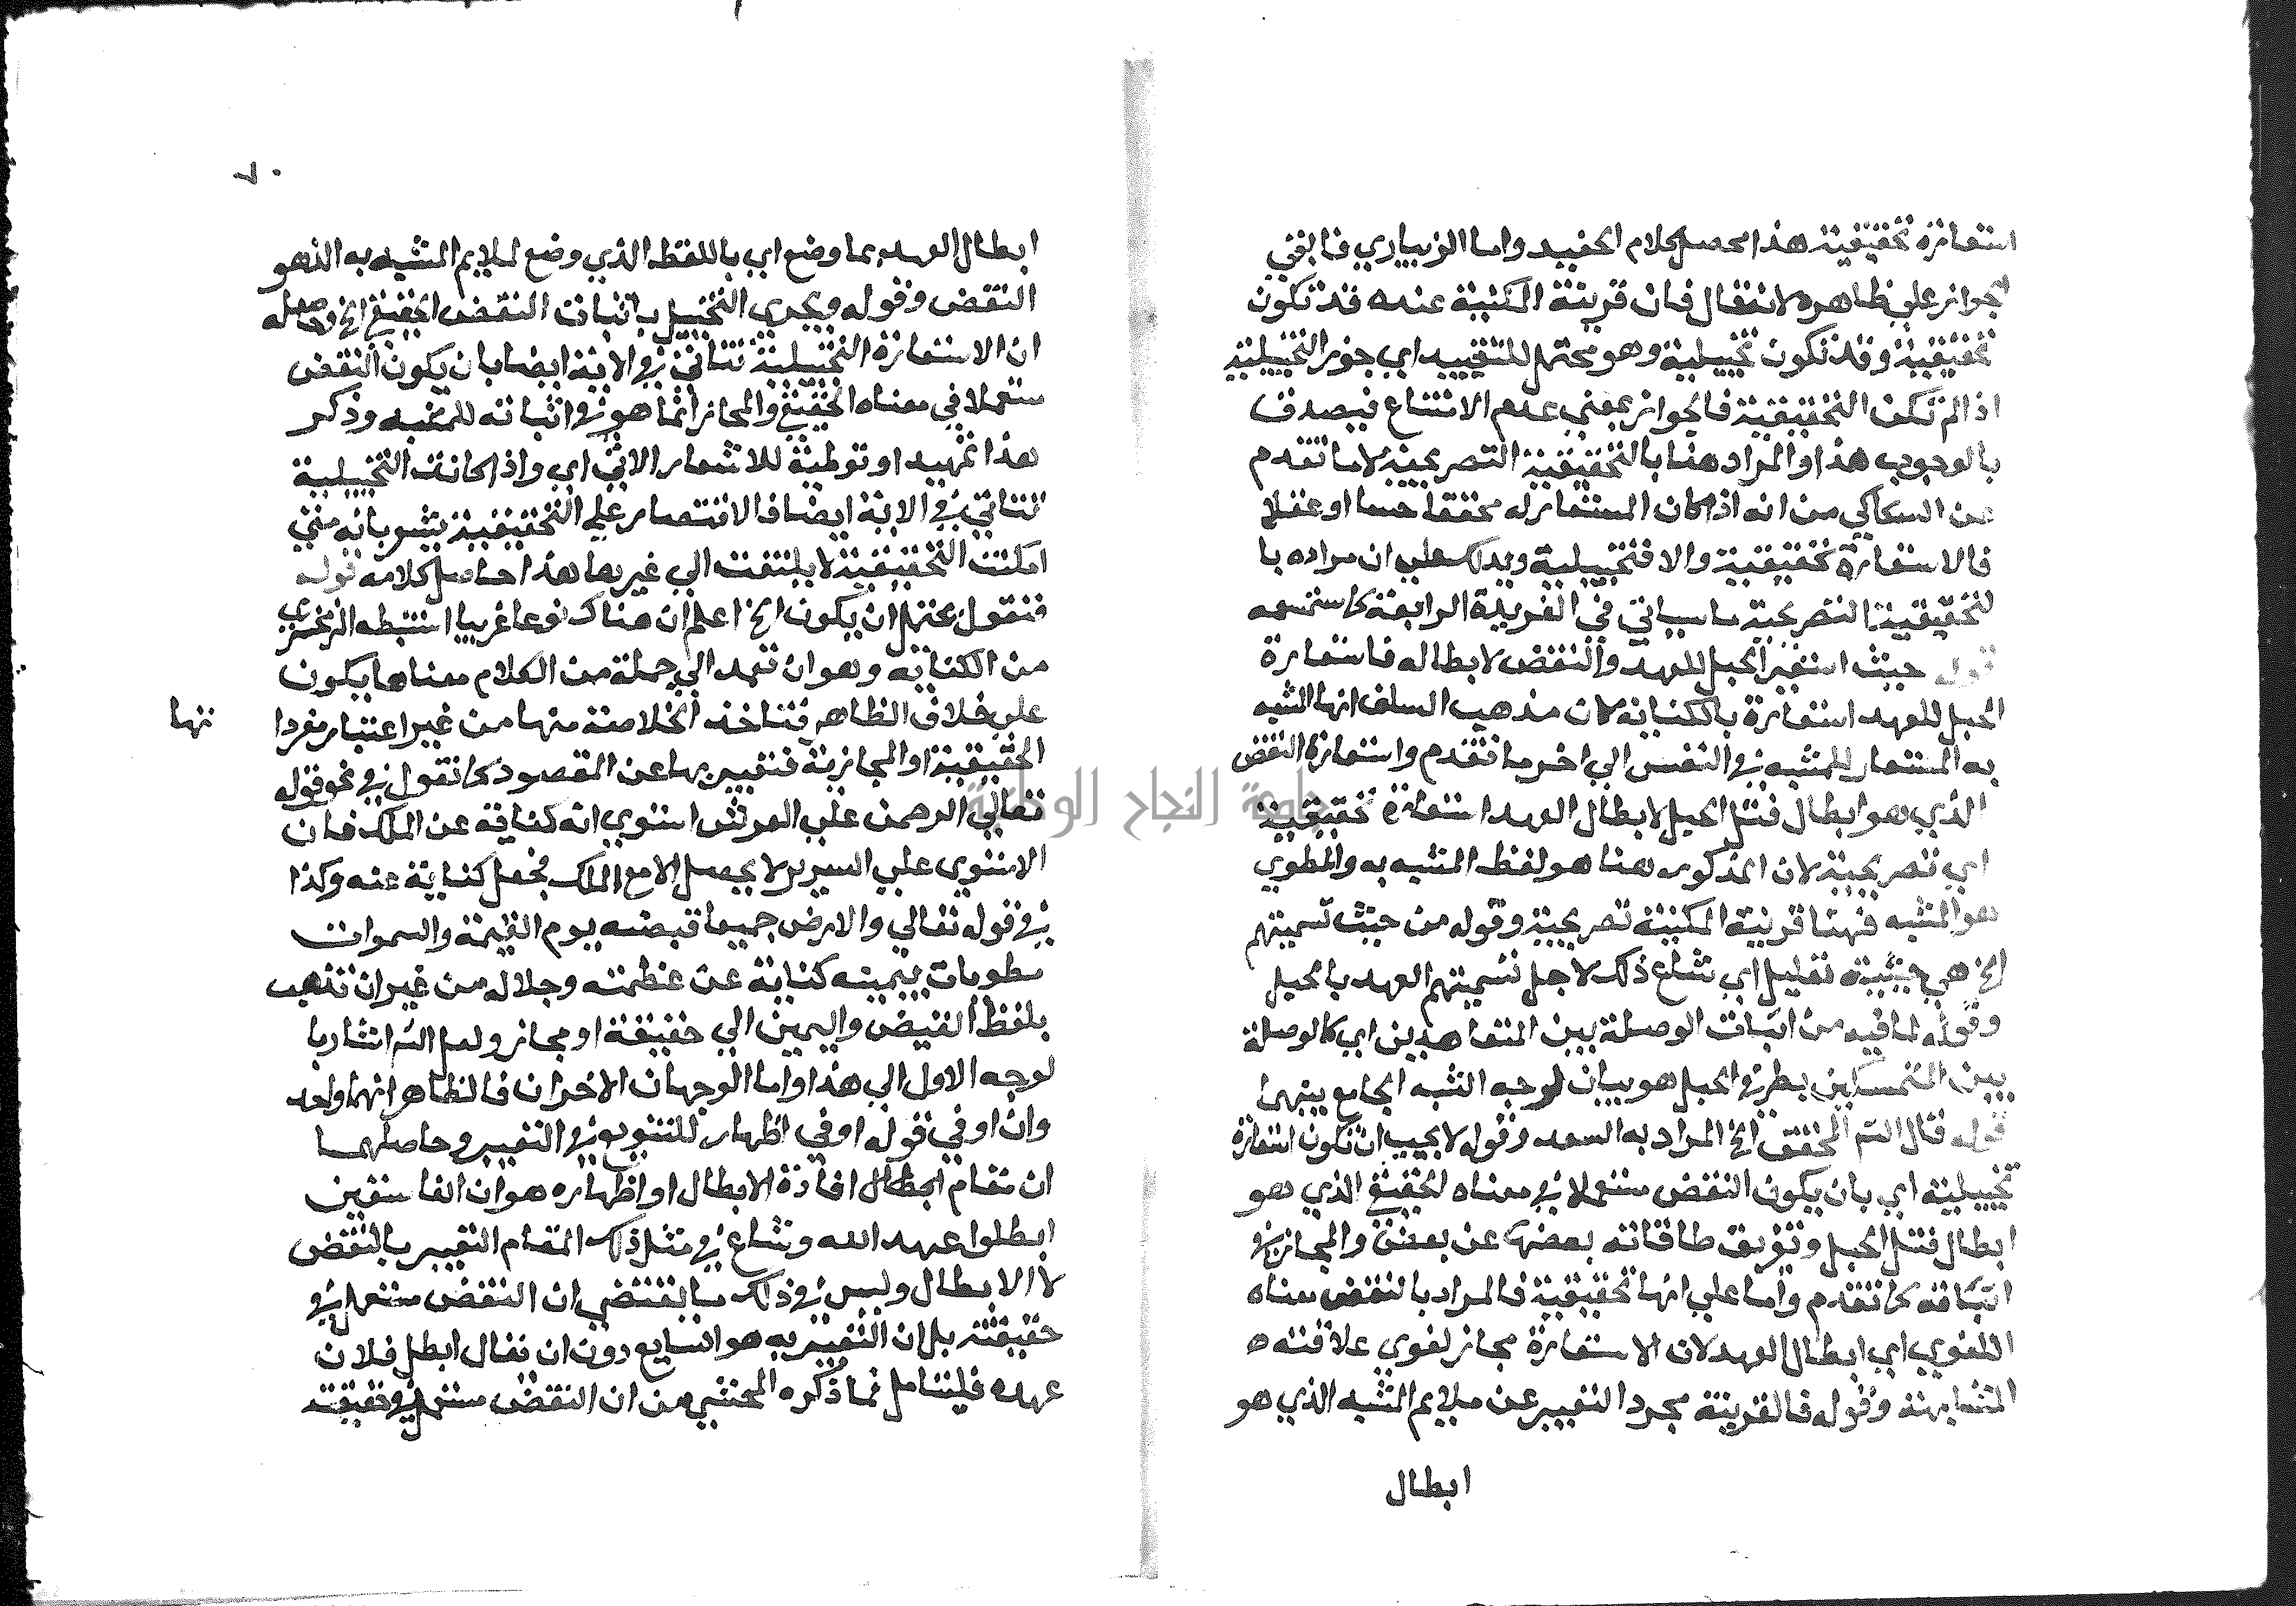 استعارة تحقيقية هذا محصل كلام الحفيد واما الزيباري فابقي
الجواز علي ظاهره لانه قال فان قرينة المكنية عنده قد تكون
تحقيقية وقد تكون تخييلية وهو محتمل للتقييد اي جوز التخييلية
اذا لم تكن التحقيقية فالجواز بمعني عدم الامتناع فيصدق
بالوجوب هذا والمراد هنا بالتحقيقية التصريحية لا ما تقدم
عن السكاكي من انه اذا كان المستعار له محققا حسا او عقلا
فالاستعارة تحقيقية والا فتخييلية ويدلك علي ان مراده با
لتحقيقية التصريحية ما سياتي في الفريدة الرابعة كما ستسمعه
قوله حيث استعير الحبل للعهد والنقض لابطاله فاستعارة
الحبل للعهد استعارة بالكناية كان مذهب السلف انها المشبه
به المستعار للمشبه في النفس الي اخر ما تقدم واستعارة النقض
الذي هو ابطال فتل الحبل لابطال العهد استعارة تحقيقية
اي تصريحية لان المذكور هنا هو لفظ المشبه به والمطوي
هو المشبه فهنا قرينة المكنية تصريحية وقوله من حيث تسميتهم
الخ هي حيثية تعليل اي شاع ذلك لاجل تسميتهم العهد بالحبل
وقوله لما فيه من اثبات الوصلة بين المتعاهدين اي كالوصلة
بين المتمسكين بطرفي الحبل هو بيان لوجه الشبه الجامع بينهما
قوله قال الش المحقق الخ المراد به السعد وقوله لا يجب ان تكون استعارة
تخييلية اي بان يكون النقض مستعملا في معناه الحقيقي الذي هو
ابطال فتل الحبل وتفريق طاقاته بعضها عن بعض والمجاز في
اثباته كما تقدم واما علي انها تحقيقية فالمراد بالنقض معناه
اللغوي اي ابطال العهد لان الاستعارة مجاز لغوي علاقته
المشابهة وقوله فالقرينة مجرد التعبير عن ملايم المشبه الذي هو
ابطال
٧٠
ابطال العهد بما وضع اي باللفظ الذي وضع لملايم المشبه به الذي هو
النقض وقوله ويجري التخييل باثبات النقض الحقيقي الخ وحاصله
ان الاستعارة التخييلية تتاتي في الاية ايضا بان يكون النقض
مستعملا في معناه الحقيقي والمجاز انما هو في اثباته للمشبه وذكر
هذا تمهيدا وتوطية للاشعار الاتي اي واذا كانت التخييلية
تتاتي في الاية ايضا فالاقتصار علي التحقيقية يشعر بانه متي
امكنت التحقيقية لا يلتفت الي غيرها هذا حاصل كلامه قوله
فنقول يحتمل ان يكون الخ اعلم ان هناك نوعا غريبا استنبطه الزمخشري
من الكناية وهو ان تعمد الي جملة من الكلام معناها يكون
علي خلاف الظاهر فتاخذ الخلاصة منها من غير اعتبار مفردا
تها
الحقيقية او المجازية فتعبر بها عن المقصود كما تقول في نحو قوله
تعالي الرحمن علي العرش استوي انه كناية عن الملك فان
الاستوي علي السرير لا يحصل الا مع الملك فجعل كناية عنه وكذا
في قوله تعالي والارض جميعا قبضته يوم القيمة والسموات
مطويات بيمينه كناية عن عظمته وجلاله من غير ان تذهب
بلفظ القبض واليمين الي حقيقة او مجاز ولعل الش اشار با
لوجه الاول الي هذا واما الوجهان الاخران فالظاهر انهما واحد
وان او في قوله او في اظهار للتنويع في التعبير وحاصلهما
ان مقام افادة الابطال او اظهاره هو ان الفاسقين
ابطلوا عهد الله وشاع في مثل ذلك المقام التعبير بالنقض
لا الابطال وليس في ذلك ما يقتضي ان النقض مستعمل في
حقيقته بل ان التعبير به هو السايغ دون ان تقال ابطل فلان
عهده فليتامل فما ذكره المحشي من ان النقض مستعمل في حقيقته